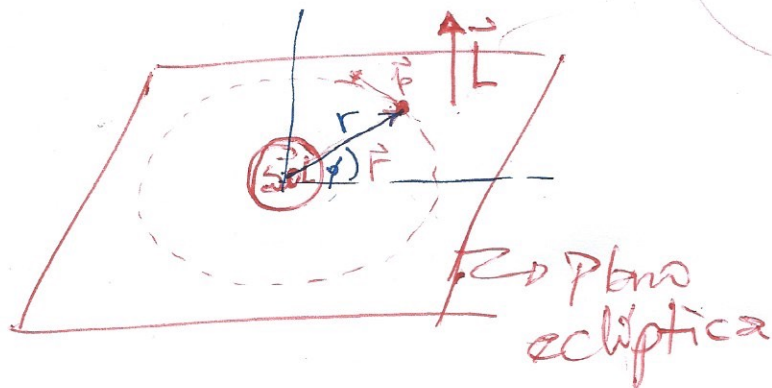 L
p
r
Sol
φ
r
Plano
eclíptica